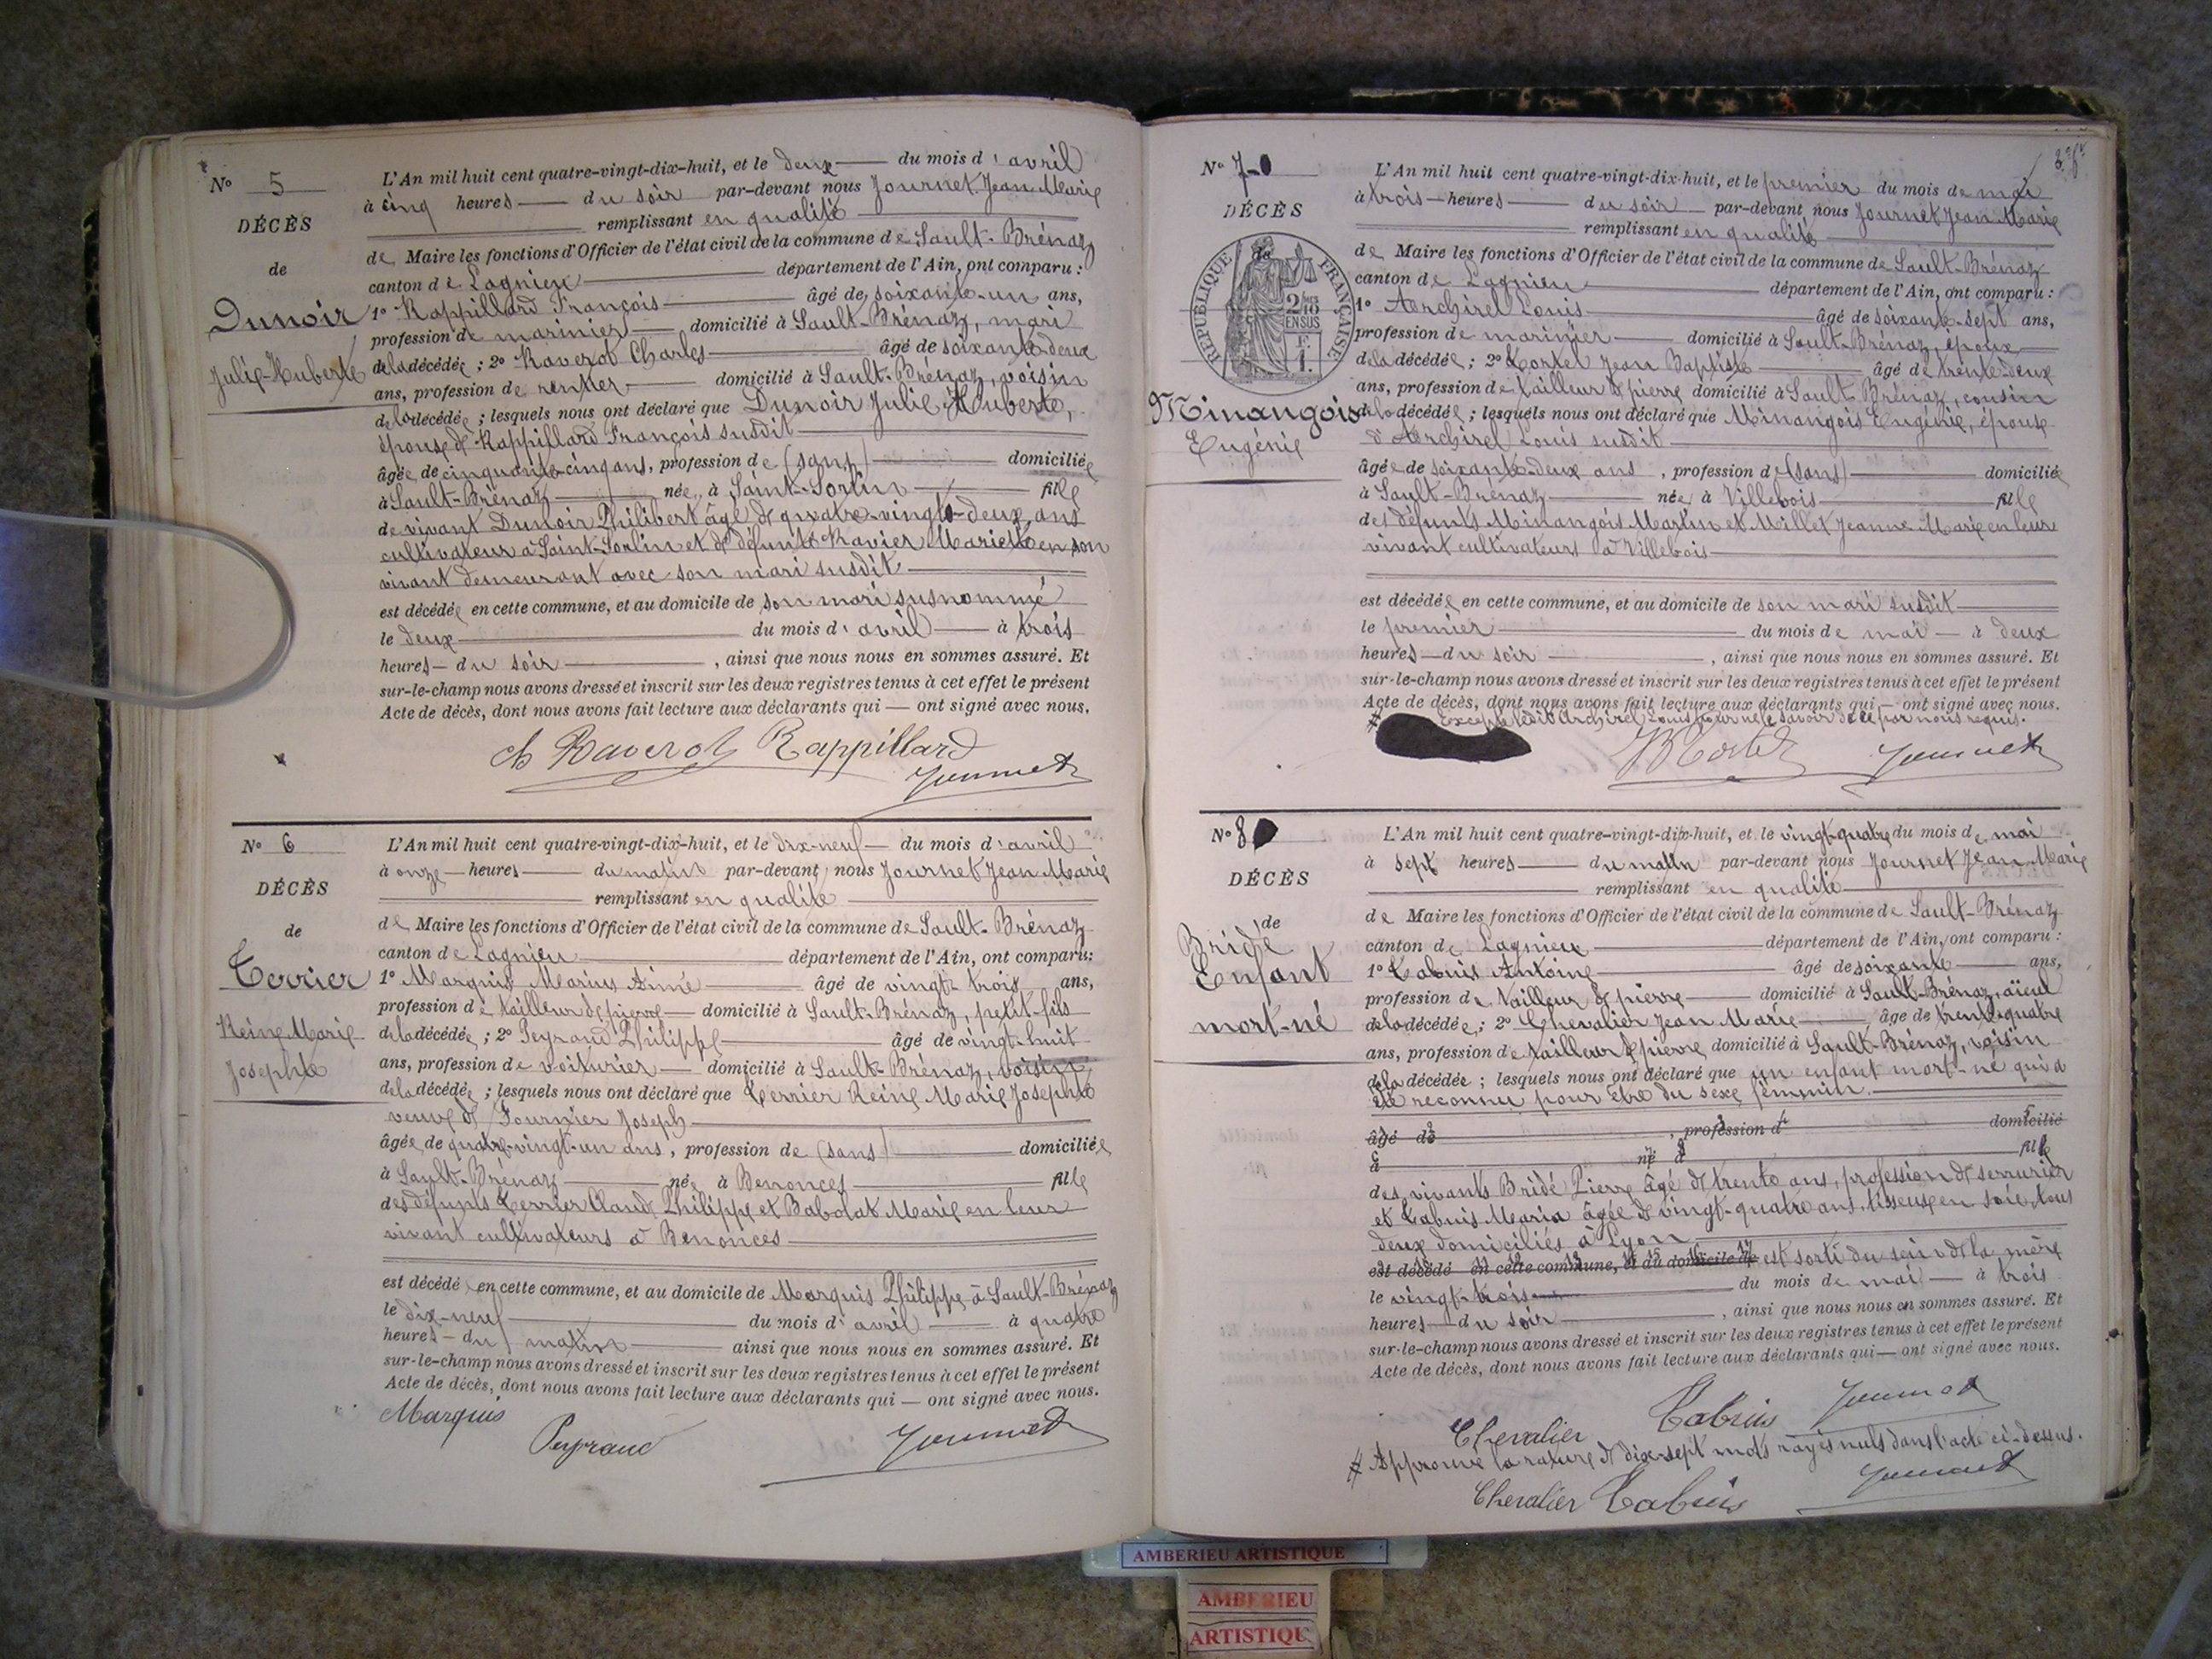 N° 5
DÉCÈS
de
Dunoir
Julie-Huberte
L'An mil huit cent quatre-vingt-dix-huit, et le deux du mois d'avril
à cinq heures du soir par-devant nous Journet Jean Marie
remplissant en qualité
de Maire les fonctions d'Officier de l'état civil de la commune de Sault-Brénaz
canton de Lagnieu département de l'Ain, ont comparu :
1° Rappillard François âgé de soixante-un ans,
profession de marinier domicilié à Sault-Brénaz, mari
de la décédée ; 2° Raverot Charles âgé de soixante-deux
ans, profession de rentier domicilié à Sault-Brénaz, voisin
de la décédée ; lesquels nous ont déclaré que Dunoir Julie Huberte,
épouse de Rappillard François susdit
âgée de cinquante-cinq ans, profession de (sans) domiciliée
à Sault-Brénaz née à Saint-Sorlin fille
de vivant Dunoir Philibert âgé de quatre-vingt-deux ans
cultivateur à Saint-Sorlin et de défunte Ravier Mariette en son
vivant demeurant avec son mari susdit
est décédée en cette commune, et au domicile de son mari susnommé
le deux du mois d'avril à trois
heures du soir , ainsi que nous nous en sommes assuré. Et
sur-le-champ nous avons dressé et inscrit sur les deux registres tenus à cet effet le présent
Acte de décès, dont nous avons fait lecture aux déclarants qui — ont signé avec nous.
Ch Raverot Rappillard
Journet
N° 6
DÉCÈS
de
Terrier
Reine Marie
Josephte
L'An mil huit cent quatre-vingt-dix-huit, et le dix-neuf du mois d'avril
à onze heures du matin par-devant nous Journet Jean Marie
remplissant en qualité
de Maire les fonctions d'Officier de l'état civil de la commune de Sault-Brénaz
canton de Lagnieu département de l'Ain, ont comparu:
1° Marquis Marius Aimé âgé de vingt-trois ans,
profession de tailleur de pierre domicilié à Sault-Brénaz, petit-fils
de la décédée ; 2° Peyraud Philippe âgé de vingt-huit
ans, profession de voiturier domicilié à Sault-Brénaz, voisin
de la décédée ; lesquels nous ont déclaré que Terrier Reine Marie Josephte
veuve de Fournier Joseph
âgée de quatre-vingt-un ans, profession de (sans) domiciliée
à Sault-Brénaz née à Benonces fille
des défunts Terrier Claude Philippe et Babolat Marie en leur
vivant cultivateurs à Benonces
est décédée en cette commune, et au domicile de Marquis Philippe à Sault-Brénaz
le dix-neuf du mois d'avril à quatre
heures du matin ainsi que nous nous en sommes assuré. Et
sur-le-champ nous avons dressé et inscrit sur les deux registres tenus à cet effet le présent
Acte de décès, dont nous avons fait lecture aux déclarants qui — ont signé avec nous.
Marquis
Peyraud Journet
N° 7
DÉCÈS
de
RÉPUBLIQUE FRANÇAISE
2/10
EN SUS
Minangois
Eugénie
L'An mil huit cent quatre-vingt-dix-huit, et le premier du mois de mai
à trois heures du soir par-devant nous Journet Jean Marie
remplissant en qualité
de Maire les fonctions d'Officier de l'état civil de la commune de Sault-Brénaz
canton de Lagnieu département de l'Ain, ont comparu :
1° Archirel Louis âgé de soixante-sept ans,
profession de marinier domicilié à Sault-Brénaz, époux
de la décédée ; 2° Costel Jean Baptiste âgé de trente-deux
ans, profession de tailleur de pierre domicilié à Sault-Brénaz, cousin
de la décédée ; lesquels nous ont déclaré que Minangois Eugénie, épouse
d'Archirel Louis susdit
âgée de soixante-deux ans , profession de (sans) domiciliée
à Sault-Brénaz née à Villebois fille
des défunts Minangois Martin et Millet Jeanne Marie en leur
vivant cultivateurs à Villebois
est décédée en cette commune, et au domicile de son mari susdit
le premier du mois de mai à deux
heures du soir , ainsi que nous nous en sommes assuré. Et
sur-le-champ nous avons dressé et inscrit sur les deux registres tenus à cet effet le présent
Acte de décès, dont nous avons fait lecture aux déclarants qui — ont signé avec nous.
Excepté ledit Archirel Louis pour ne le savoir de ce par nous requis.
Journet
N° 8
DÉCÈS
de
Bridé
Enfant
mort-né
L'An mil huit cent quatre-vingt-dix-huit, et le vingt-quatre du mois de mai
à sept heures du matin par-devant nous Journet Jean Marie
remplissant en qualité
de Maire les fonctions d'Officier de l'état civil de la commune de Sault-Brénaz
canton de Lagnieu département de l'Ain, ont comparu :
1° Tabuis Antoine âgé de soixante ans,
profession de tailleur de pierre domicilié à Sault-Brénaz, aïeul
de la décédée ; 2° Chevalier Jean Marie âgé de trente-quatre
ans, profession de tailleur de pierre domicilié à Sault-Brénaz, voisin
de la décédée ; lesquels nous ont déclaré que un enfant mort-né qui a
été reconnu pour être du sexe féminin.
âgé de , profession de domicilié
à né à fille
des vivants Bridé Pierre âgé de trente ans, profession de serrurier
et Tabuis Maria âgée de vingt-quatre ans, tisseuse en soie, tous
deux domiciliés à Lyon
est décédé en cette commune, et au domicile de est sorti du sein de la mère
le vingt-trois du mois de mai à trois
heures du soir , ainsi que nous nous en sommes assuré. Et
sur-le-champ nous avons dressé et inscrit sur les deux registres tenus à cet effet le présent
Acte de décès, dont nous avons fait lecture aux déclarants qui — ont signé avec nous.
Chevalier Tabuis Journet
Approuvé la rature de dix-sept mots rayés nuls dans l'acte ci-dessus.
Chevalier Tabuis Journet
AMBERIEU ARTISTIQUE
AMBERIEU
ARTISTIQU